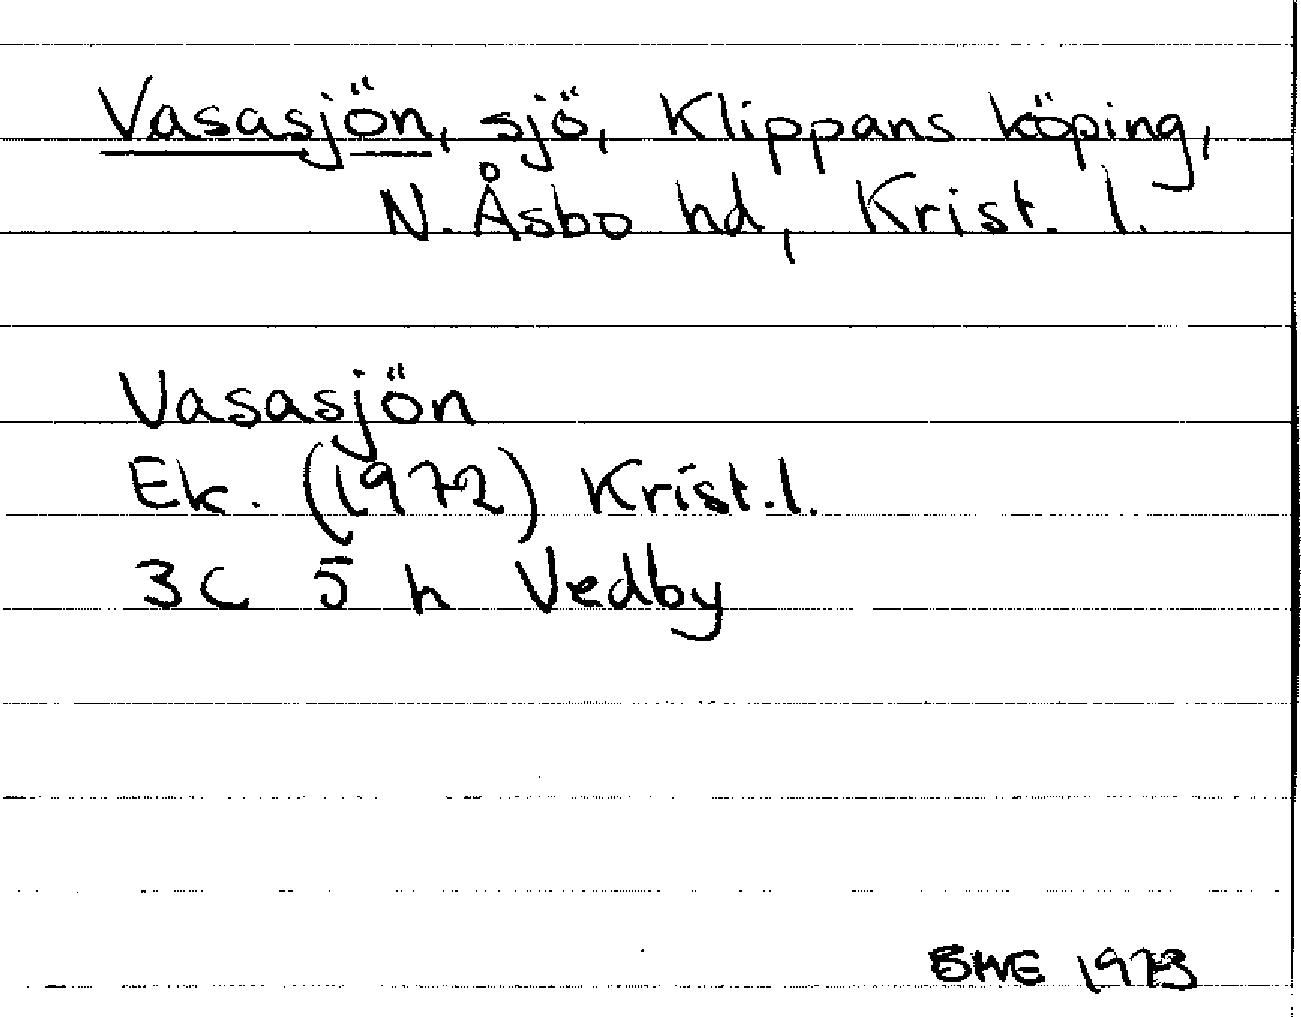 Vasasjön, sjö, Klippans köping,
N. Åsbo hd, Krist. l.
Vasasjön
Ek. (1972) Krist. l.
3C 5 h Vedby
1973